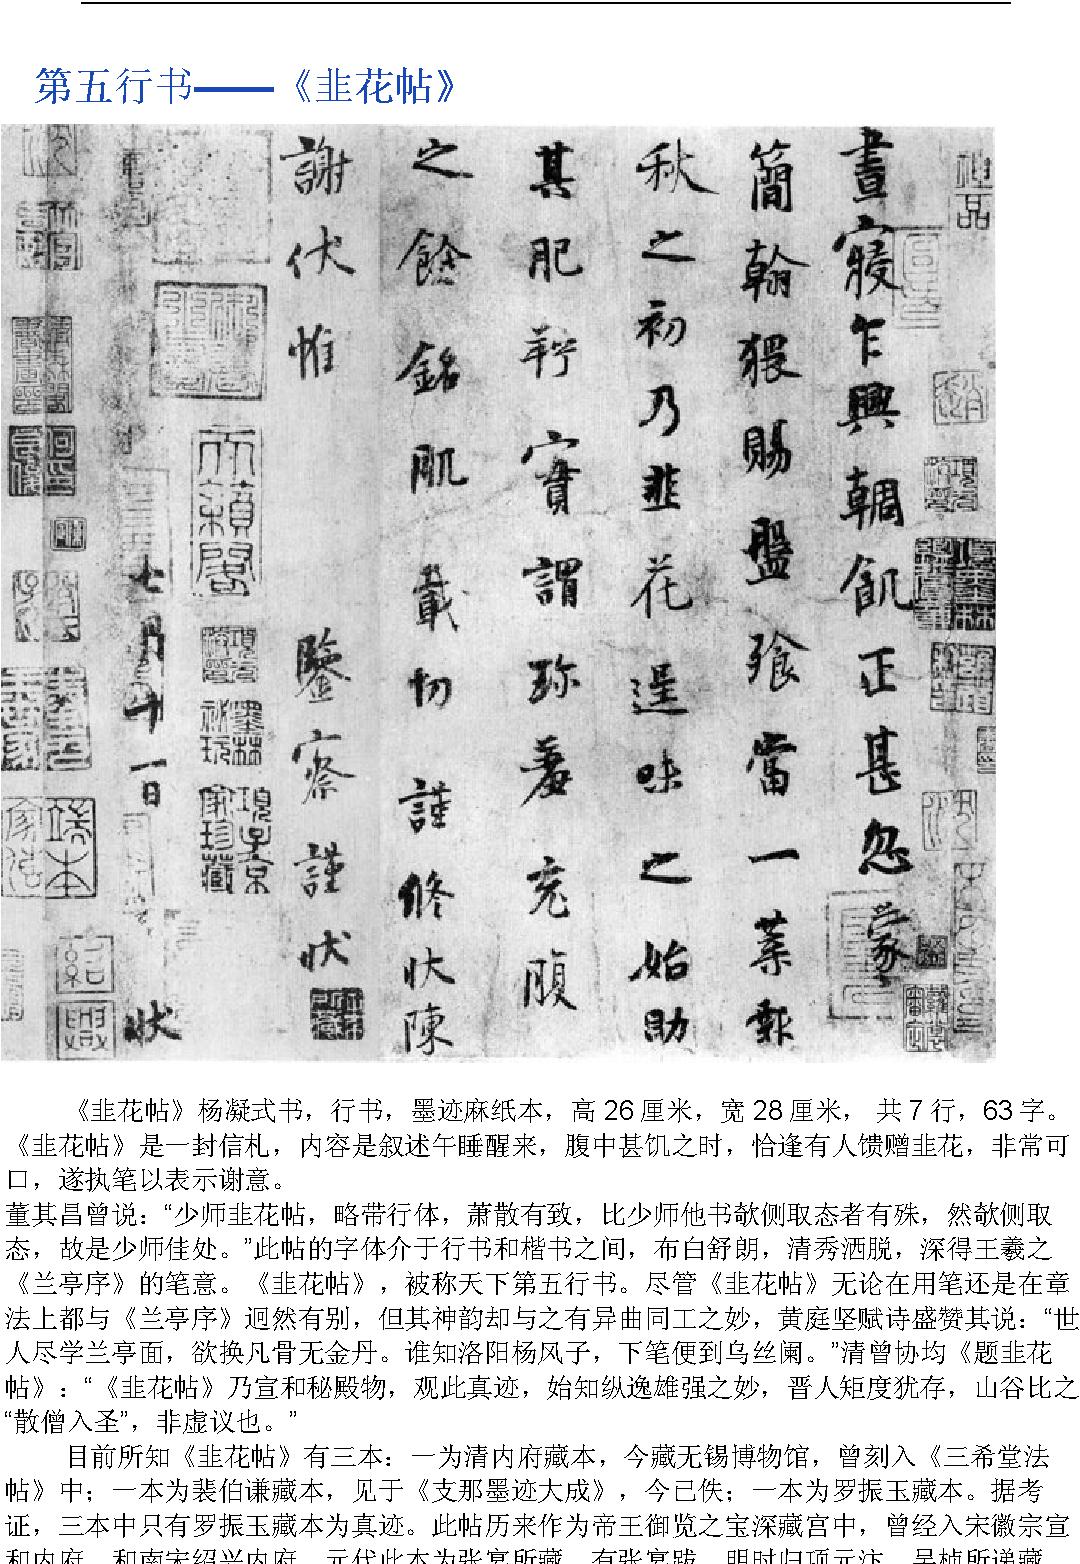 第五行书——《韭花帖》
晝寢乍興輖飢正甚忽蒙
簡翰猥賜盤飧當一葉報
秋之初乃韭花逞味之始助
其肥羜實謂珍羞充腹
之餘銘肌載切謹修狀陳
謝伏惟 鑒察謹狀
七月十一日 狀
神品
天籟閣
項子京家珍藏
墨林祕玩
紹興
端本家傳
《韭花帖》杨凝式书，行书，墨迹麻纸本，高 26 厘米，宽 28 厘米， 共 7 行，63 字。
《韭花帖》是一封信札，内容是叙述午睡醒来，腹中甚饥之时，恰逢有人馈赠韭花，非常可
口，遂执笔以表示谢意。
董其昌曾说：“少师韭花帖，略带行体，萧散有致，比少师他书欹侧取态者有殊，然欹侧取
态，故是少师佳处。”此帖的字体介于行书和楷书之间，布白舒朗，清秀洒脱，深得王羲之
《兰亭序》的笔意。《韭花帖》，被称天下第五行书。尽管《韭花帖》无论在用笔还是在章
法上都与《兰亭序》迥然有别，但其神韵却与之有异曲同工之妙，黄庭坚赋诗盛赞其说：“世
人尽学兰亭面，欲换凡骨无金丹。谁知洛阳杨风子，下笔便到乌丝阑。”清曾协均《题韭花
帖》：“《韭花帖》乃宣和秘殿物，观此真迹，始知纵逸雄强之妙，晋人矩度犹存，山谷比之
“散僧入圣”，非虚议也。”
目前所知《韭花帖》有三本：一为清内府藏本，今藏无锡博物馆，曾刻入《三希堂法
帖》中；一本为裴伯谦藏本，见于《支那墨迹大成》，今已佚；一本为罗振玉藏本。据考
证，三本中只有罗振玉藏本为真迹。此帖历来作为帝王御览之宝深藏宫中，曾经入宋徽宗宣
和内府，和南宋绍兴内府，元代此本为张宴所藏，有张宴跋，明时归项元汴，吴桢所递藏